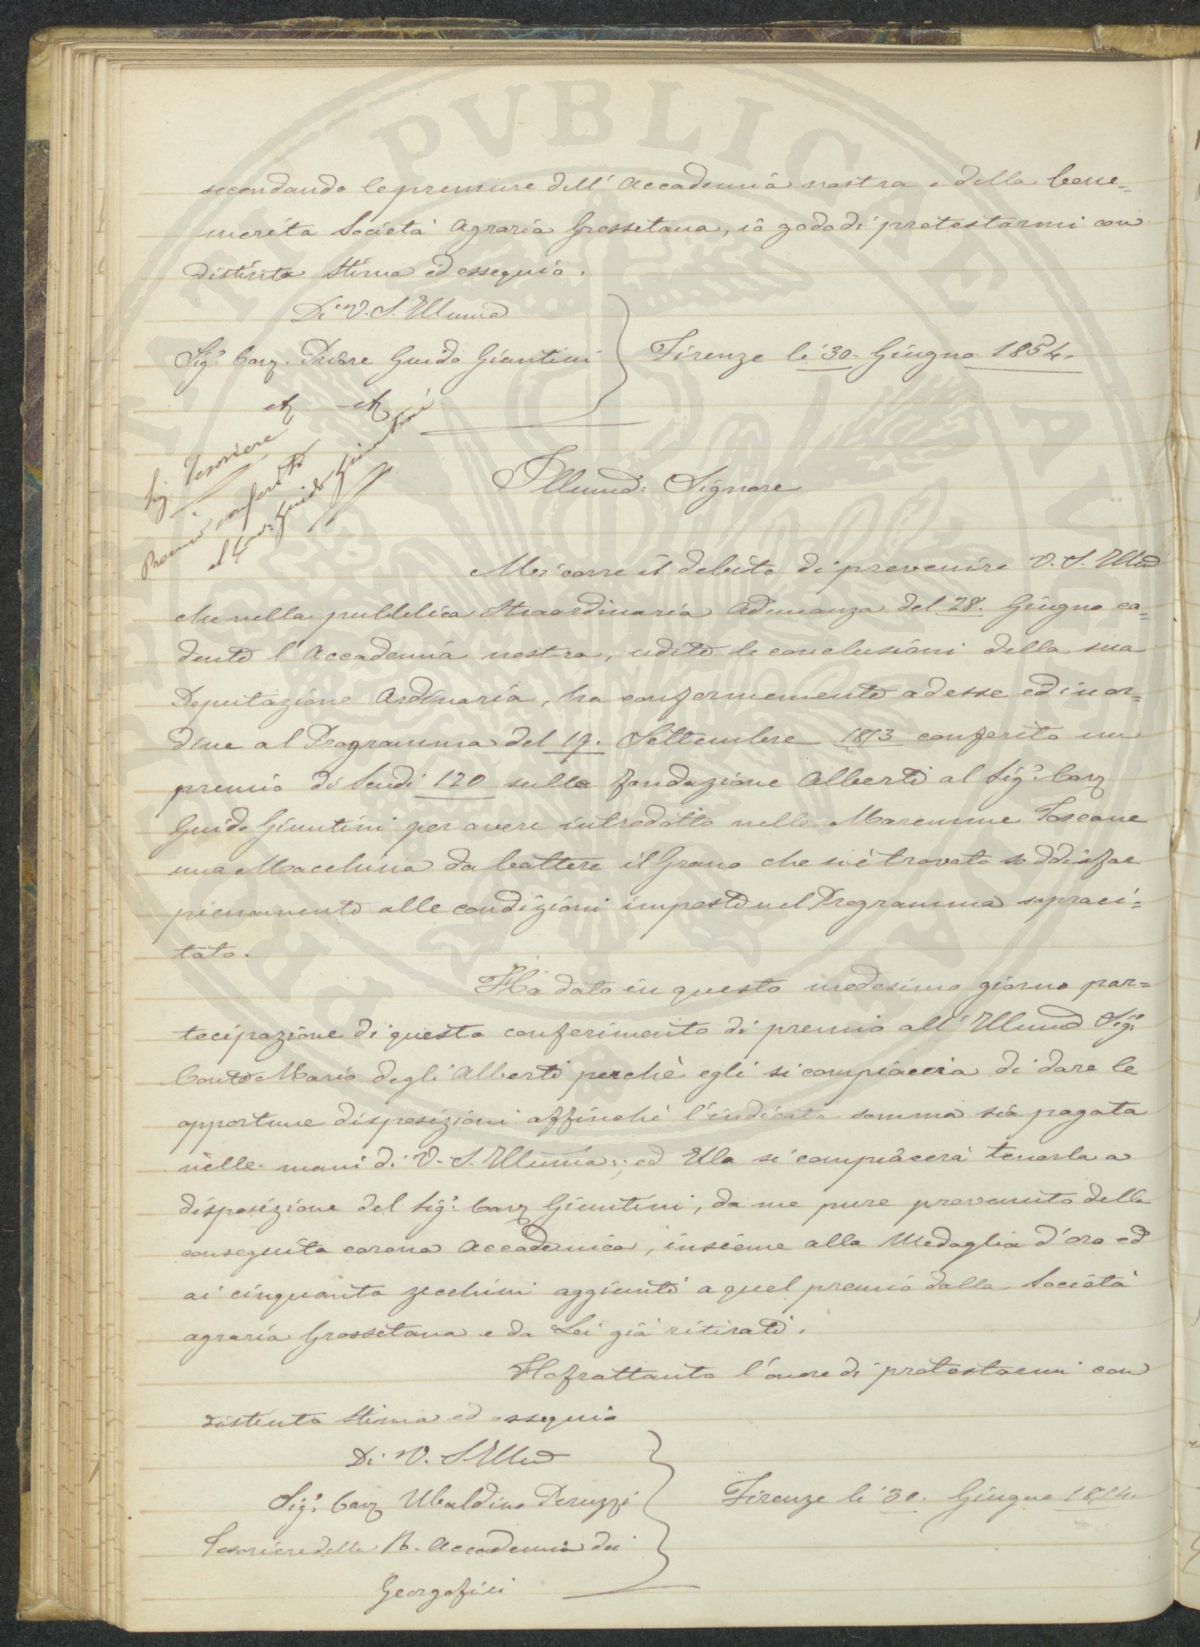 secondando le premure dell'Accademia nostra e della bene=
merita Società Agraria Grossetana, io godo di protestarmi con
distinta stima ed ossequio.
Di V. S. Illuma
Sigr Cavr. Priore Guido Giuntini
Firenze li 30. Giugno 1854.
Sig. Tesoriere
Premio conferito
al Cavr Guido Giuntini
Illumo: Signore
Mi corre il debito di prevenire V. S. Illma
che nella pubblica straordinaria Adunanza del 28. Giugno ca=
dente l'Accademia nostra, udite le conclusioni della sua
Deputazione Ordinaria, ha conformemente ad esse ed in or=
dine al Programma del 19. Settembre 1853 conferito un
premio di Scudi 120 sulla fondazione Alberti al Sigr. Cavr
Guido Giuntini per avere introdotto nelle Maremme Toscane
una Macchina da battere il Grano che si è trovata soddisfar
pienamente alle condizioni imposte nel Programma sopraci=
tato.
Ho dato in questo medesimo giorno par=
tecipazione di questo conferimento di premio all'Illumo Sigr
Conte Mario degli Alberti perchè egli si compiaccia di dare le
opportune disposizioni affinchè l'indicata somma sia pagata
nelle mani di V. S. Illuma; ed Ella si compiacerà tenerla a
disposizione del Sigr. Cavr Giuntini, da me pure prevenuto della
conseguita corona Accademica, insieme alla Medaglia d'oro ed
ai cinquanta zecchini aggiunti a quel premio dalla Società
agraria Grossetana e da Lei già ritirati.
Ho frattanto l'onore di protestarmi con
distinta stima ed ossequio
Di V. S. Illma
Sigr. Cavr Ubaldino Peruzzi
Firenze li 30. Giugno 1854.
Tesoriere della R. Accademia dei
Georgofili